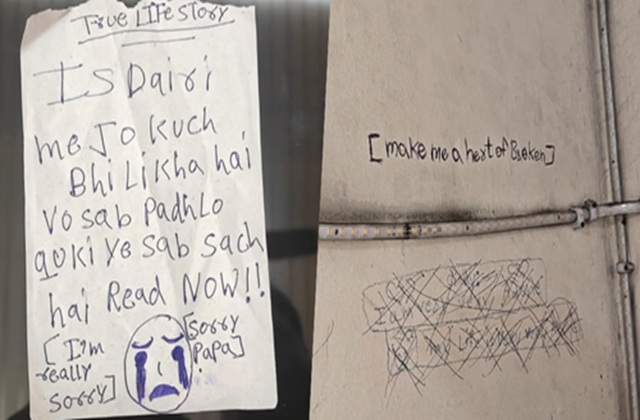 True LIFe STory
IS Dairi
me Jo kuch
Bhi Likha hai
Vo sab Padhlo
quki ye sab sach
hai Read NOW!!
[I'm
really
sorry]
[sorry
Papa]
[make me a hert of Broken]